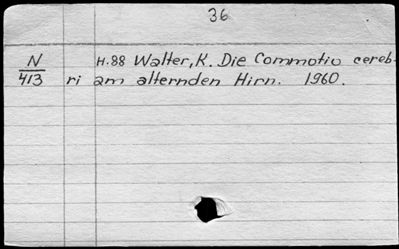 36
N H.88 Walter, K. Die Commotio cereb-
413 ri am alternden Hirn. 1960.